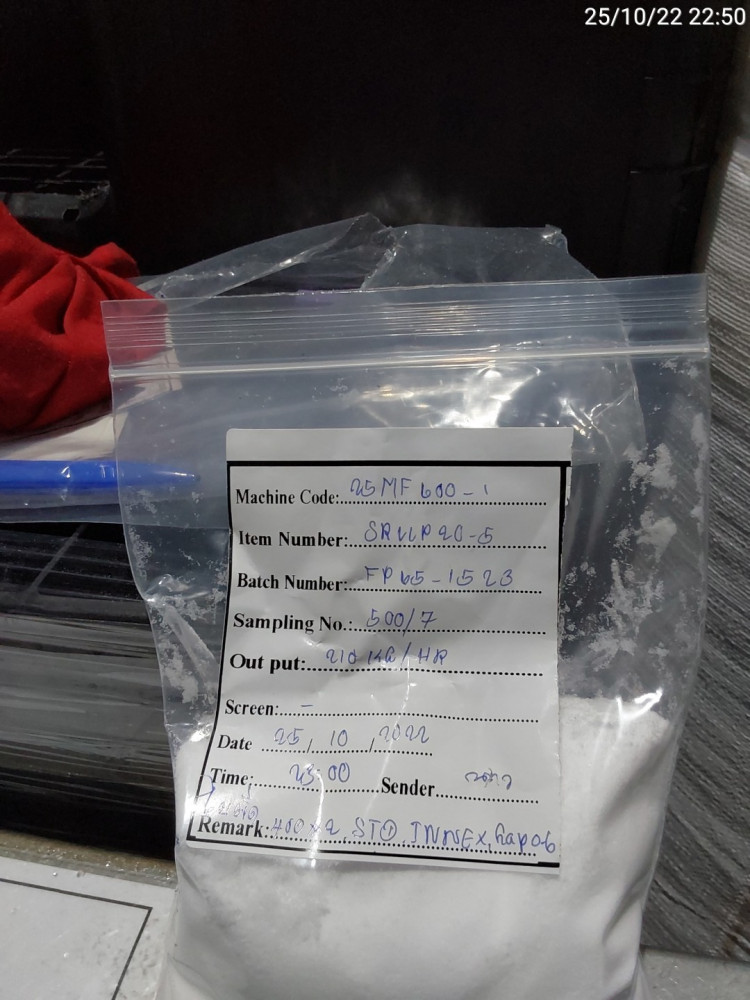 25/10/22 22:50
Machine Code: 25MF600-1
Item Number: SRUUP20-5
Batch Number: FP65-1523
Sampling No.: 500/7
Out put: 210 KG/HR
Screen: -
Date 25/10/2022
Time: 23:00 Sender
Remark: 400x2, ST①, INNEX, Gap 0.6